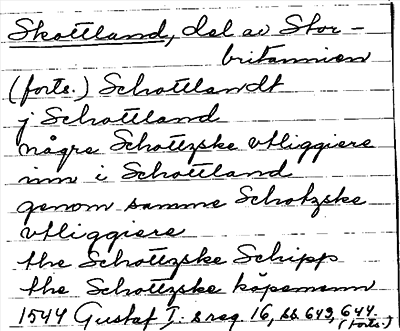 Skottland, del av Stor-
britannien
(forts.) Schottlandt
j Schottland
någre Schottzske vtliggiere
inn i Schottland
genom samme Schotzske
vtliggiere
the Schottzske Schipp
the Schottzske köpemenn
1544 Gustaf I. s reg 16, ss. 643, 644.
(forts.)